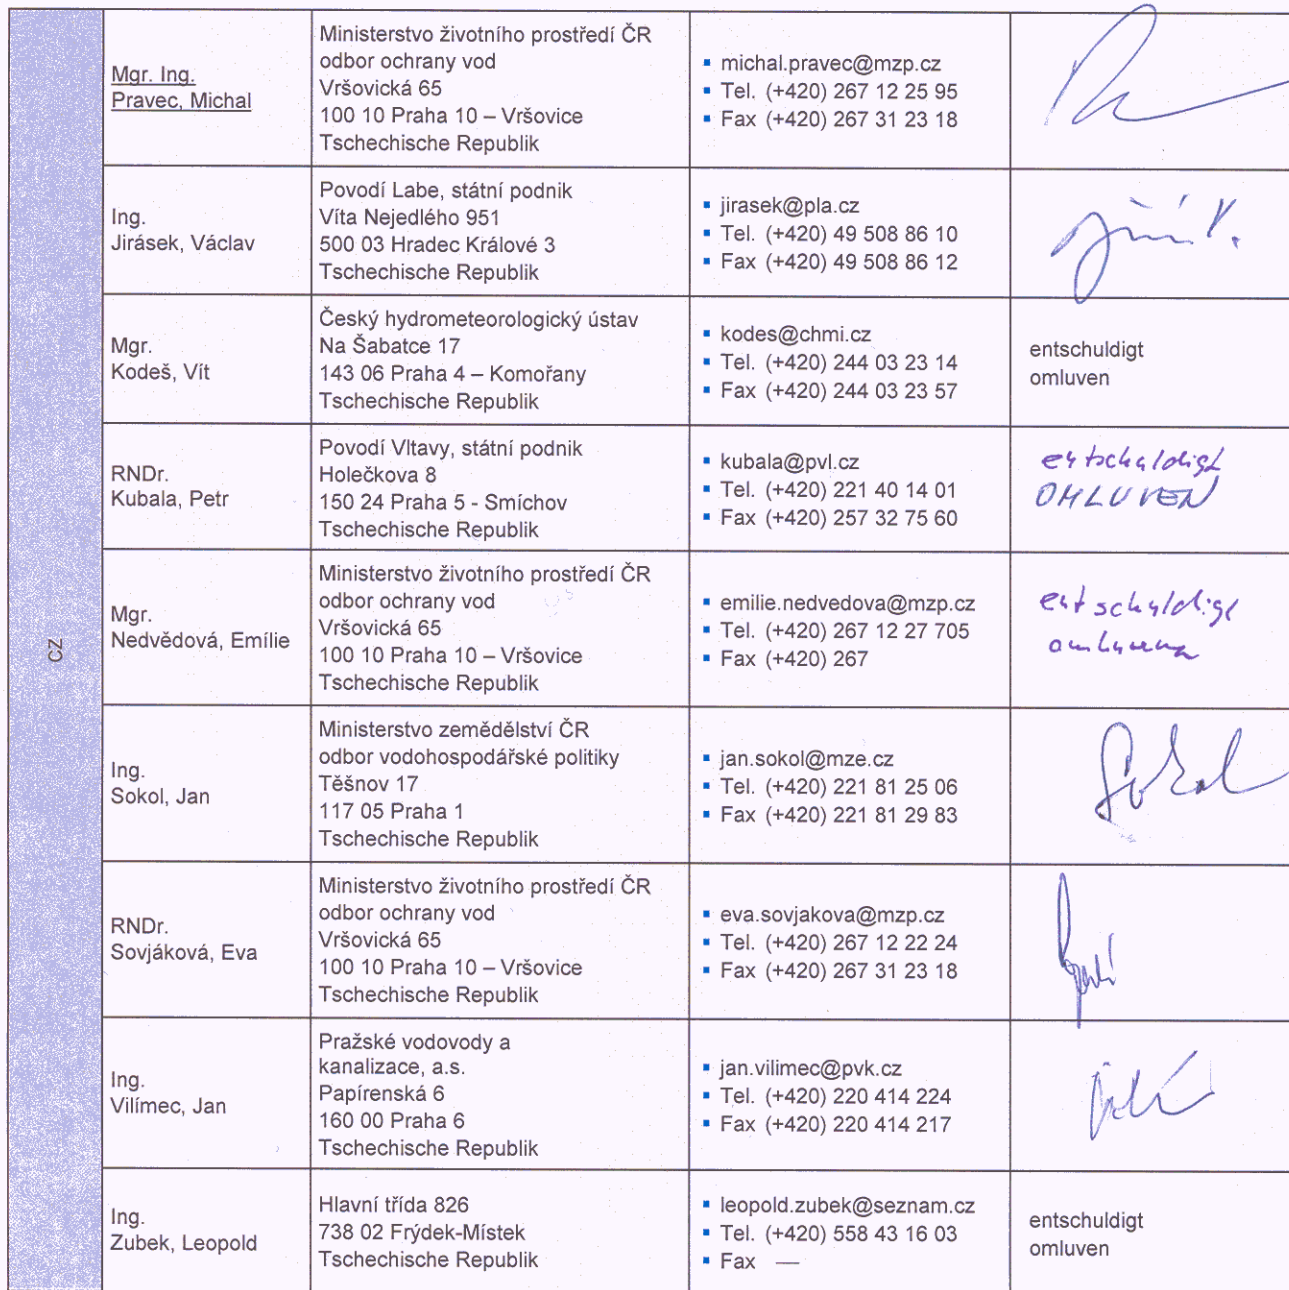 CZ
Mgr. Ing.
Pravec, Michal
Ministerstvo životního prostředí ČR
odbor ochrany vod
Vršovická 65
100 10 Praha 10 – Vršovice
Tschechische Republik
▪ michal.pravec@mzp.cz
▪ Tel. (+420) 267 12 25 95
▪ Fax (+420) 267 31 23 18
Ing.
Jirásek, Václav
Povodí Labe, státní podnik
Víta Nejedlého 951
500 03 Hradec Králové 3
Tschechische Republik
▪ jirasek@pla.cz
▪ Tel. (+420) 49 508 86 10
▪ Fax (+420) 49 508 86 12
Mgr.
Kodeš, Vít
Český hydrometeorologický ústav
Na Šabatce 17
143 06 Praha 4 – Komořany
Tschechische Republik
▪ kodes@chmi.cz
▪ Tel. (+420) 244 03 23 14
▪ Fax (+420) 244 03 23 57
entschuldigt
omluven
RNDr.
Kubala, Petr
Povodí Vltavy, státní podnik
Holečkova 8
150 24 Praha 5 - Smíchov
Tschechische Republik
▪ kubala@pvl.cz
▪ Tel. (+420) 221 40 14 01
▪ Fax (+420) 257 32 75 60
entschuldigt
OMLUVEN
Mgr.
Nedvědová, Emílie
Ministerstvo životního prostředí ČR
odbor ochrany vod
Vršovická 65
100 10 Praha 10 – Vršovice
Tschechische Republik
▪ emilie.nedvedova@mzp.cz
▪ Tel. (+420) 267 12 27 705
▪ Fax (+420) 267
entschuldigt
omluvena
Ing.
Sokol, Jan
Ministerstvo zemědělství ČR
odbor vodohospodářské politiky
Těšnov 17
117 05 Praha 1
Tschechische Republik
▪ jan.sokol@mze.cz
▪ Tel. (+420) 221 81 25 06
▪ Fax (+420) 221 81 29 83
Sokol
RNDr.
Sovjáková, Eva
Ministerstvo životního prostředí ČR
odbor ochrany vod
Vršovická 65
100 10 Praha 10 – Vršovice
Tschechische Republik
▪ eva.sovjakova@mzp.cz
▪ Tel. (+420) 267 12 22 24
▪ Fax (+420) 267 31 23 18
Ing.
Vilímec, Jan
Pražské vodovody a
kanalizace, a.s.
Papírenská 6
160 00 Praha 6
Tschechische Republik
▪ jan.vilimec@pvk.cz
▪ Tel. (+420) 220 414 224
▪ Fax (+420) 220 414 217
Ing.
Zubek, Leopold
Hlavní třída 826
738 02 Frýdek-Místek
Tschechische Republik
▪ leopold.zubek@seznam.cz
▪ Tel. (+420) 558 43 16 03
▪ Fax —
entschuldigt
omluven